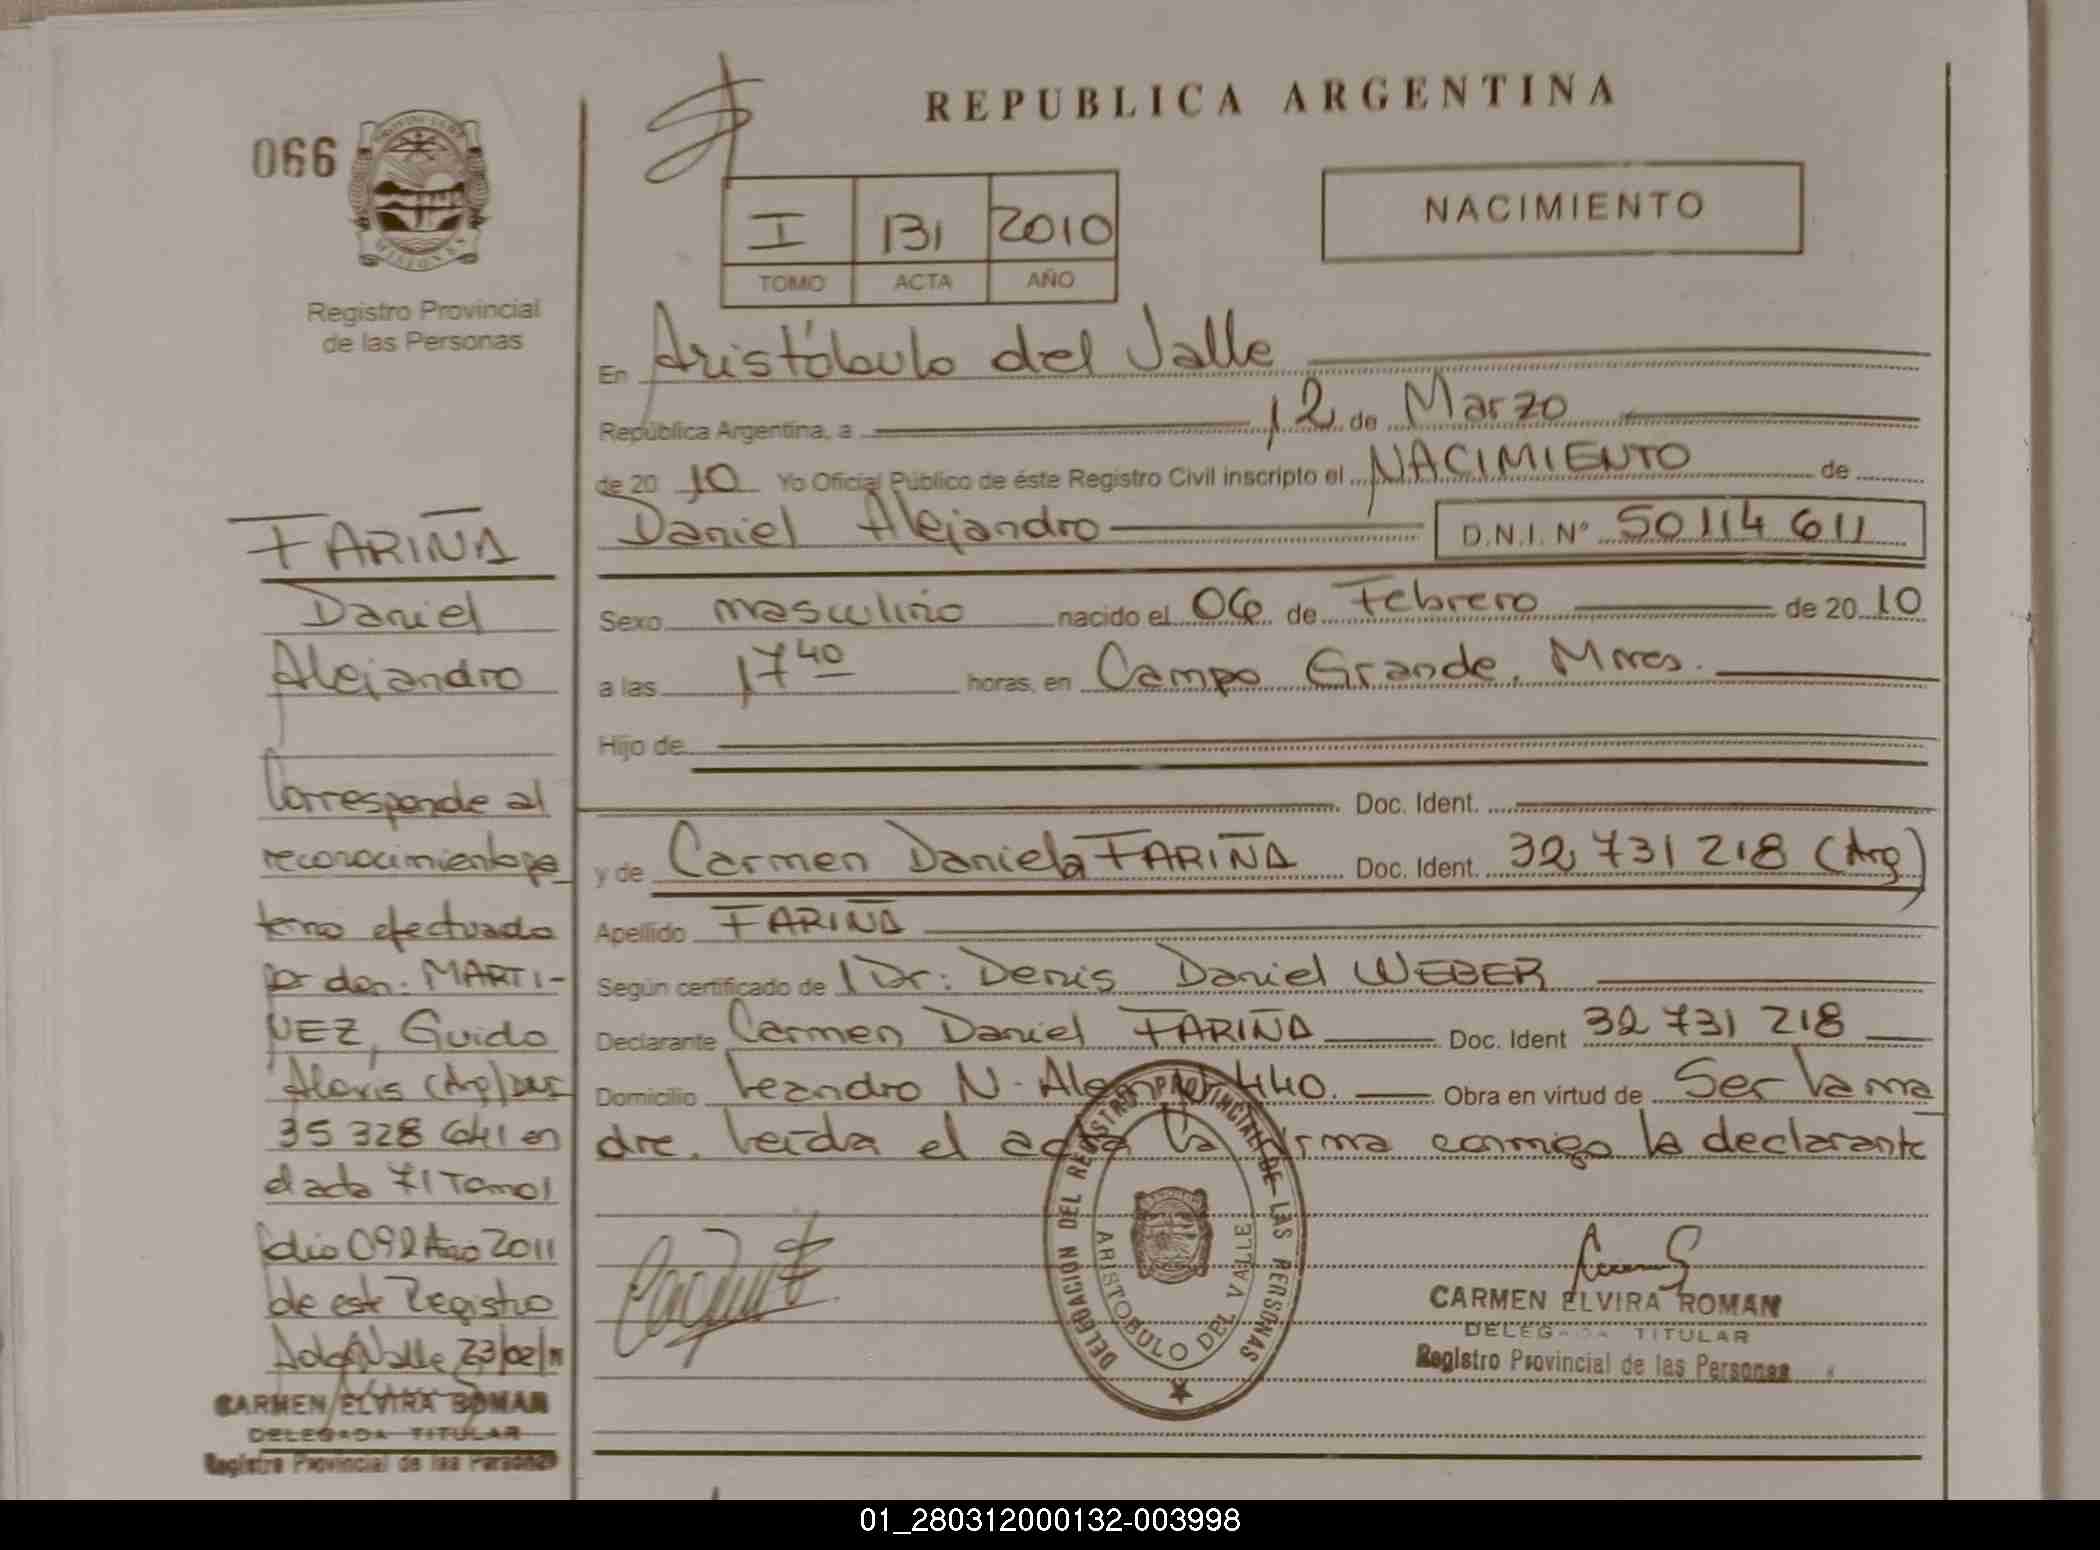 REPUBLICA ARGENTINA
066
PROVINCIA DE
MISIONES
Registro Provincial
de las Personas
I 131 2010
TOMO ACTA AÑO
NACIMIENTO
En Aristóbulo del Valle
República Argentina, a 12 de Marzo
de 20 10 Yo Oficial Público de éste Registro Civil inscripto el NACIMIENTO de
Daniel Alejandro D.N.I. Nº 50 114 611
Sexo masculino nacido el 06 de Febrero de 20 10
a las 17 40 horas, en Campo Grande, Mnes.
Hijo de
Doc. Ident.
y de Carmen Daniela FARIÑA Doc. Ident. 32 731 218 (Arg)
Apellido FARIÑA
Según certificado de Dr: Denis Daniel WEBER
Declarante Carmen Daniel FARIÑA Doc. Ident 32 731 218
Domicilio Leandro N. Alem 440. Obra en virtud de Ser la ma
dre. Leída el acta la firma conmigo la declarante
FARIÑA
Daniel
Alejandro
Corresponde al
reconocimiento pa
terno efectuado
por don: MARTI-
NEZ, Guido
Alexis (Arg) DNI
35 328 641 en
el acta 71 Tomo I
folio 092 Año 2011
de este Registro
A del Valle 23/02/11
CARMEN ELVIRA ROMAN
DELEGADA TITULAR
Registro Provincial de las Personas
DELEGACION DEL REGISTRO PROVINCIAL DE LAS PERSONAS
ARISTOBULO DEL VALLE
CARMEN ELVIRA ROMAN
DELEGADA TITULAR
Registro Provincial de las Personas
01_280312000132-003998